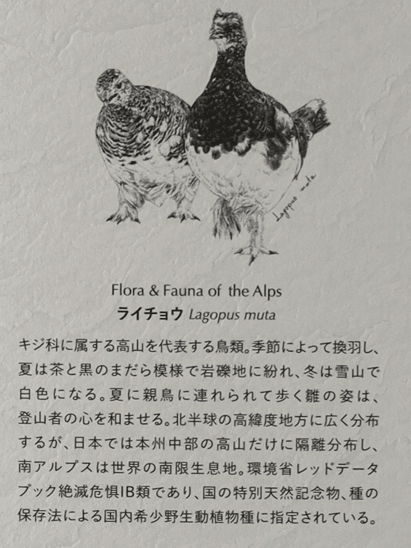 Lagopus muta
Flora & Fauna of the Alps
ライチョウ Lagopus muta
キジ科に属する高山を代表する鳥類。季節によって換羽し、
夏は茶と黒のまだら模様で岩礫地に紛れ、冬は雪山で
白色になる。夏に親鳥に連れられて歩く雛の姿は、
登山者の心を和ませる。北半球の高緯度地方に広く分布
するが、日本では本州中部の高山だけに隔離分布し、
南アルプスは世界の南限生息地。環境省レッドデータ
ブック絶滅危惧IB類であり、国の特別天然記念物、種の
保存法による国内希少野生動植物種に指定されている。